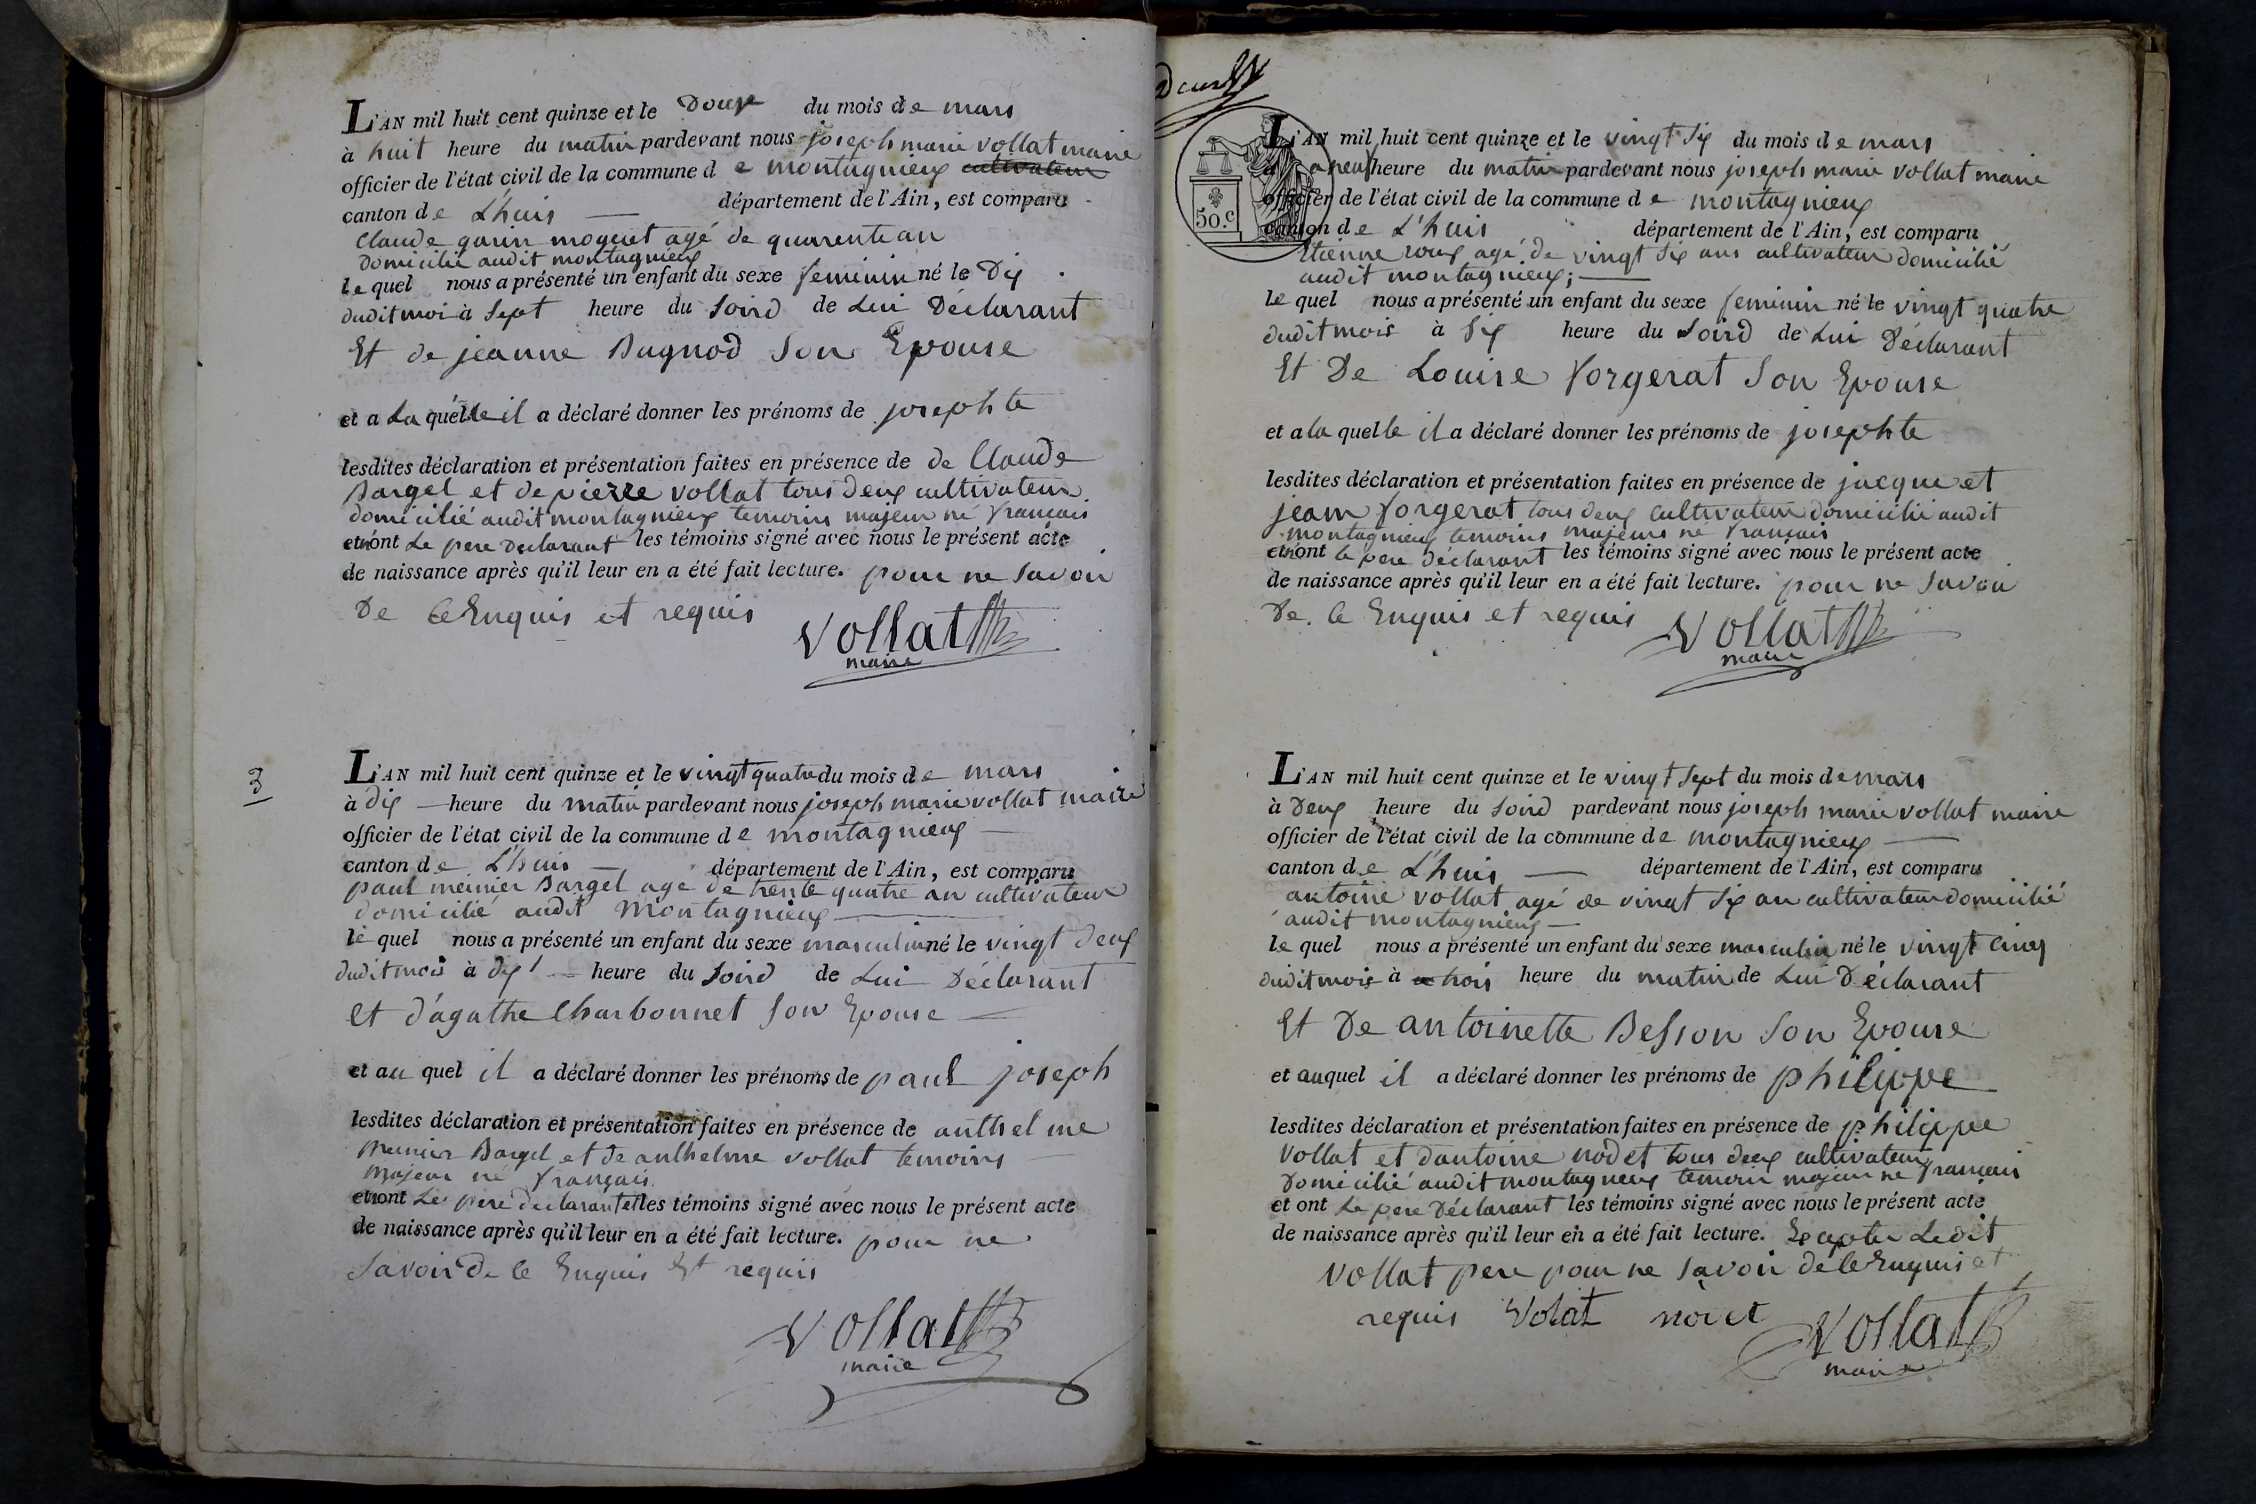 L'AN mil huit cent quinze et le Douze du mois de mars
à huit heure du matin pardevant nous joseph marie vollat maire
officier de l'état civil de la commune de montagnieux cultivateur
canton de L'huis département de l'Ain, est comparu
Claude garin moquet agé de quarente an
Domicilié audit montagnieux
lequel nous a présenté un enfant du sexe feminin né le Dix
dudit moi à sept heure du soird de Lui Déclarant
Et de jeanne Bugnod son Epouse
et a La quelle il a déclaré donner les prénoms de josephte
lesdites déclaration et présentation faites en présence de de Claude
Bargel et de pierre vollat tous deux cultivateur
domicilié audit montagnieux temoins majeur né français
et n'ont Le pere Declarant les témoins signé avec nous le présent acte
de naissance après qu'il leur en a été fait lecture. pour ne savoir
De ce Enquis et requis
Vollat
maire
3
L'AN mil huit cent quinze et le vingt quatre du mois de mars
à dix heure du matin pardevant nous joseph marie vollat maire
officier de l'état civil de la commune de montagnieux
canton de L'huis département de l'Ain, est comparu
paul meunier Bargel agé de trente quatre an cultivateur
domicilié audit Montagnieux
lequel nous a présenté un enfant du sexe masculin né le vingt deux
dudit mois à dix heure du soird de Lui Déclarant
et d'agathe Charbonnet son Epouse
et au quel il a déclaré donner les prénoms de paul joseph
lesdites déclaration et présentation faites en présence de anthelme
meunier Bargel et de anthelme vollat temoins
majeur né français
et n'ont Le pere declarant et les témoins signé avec nous le présent acte
de naissance après qu'il leur en a été fait lecture. pour ne
savoir de ce Enquis Et requis
Vollat
maire
50.c
L'AN mil huit cent quinze et le vingt six du mois de mars
à neuf heure du matin pardevant nous joseph marie vollat maire
officier de l'état civil de la commune de montagnieux
canton de L'huis département de l'Ain, est comparu
Etienne roux agé de vingt six ans cultivateur domicilié
audit montagnieux;
le quel nous a présenté un enfant du sexe feminin né le vingt quatre
dudit mois à six heure du soird de Lui Déclarant
Et De Louise forgerat son Epouse
et a la quelle il a déclaré donner les prénoms de josephte
lesdites déclaration et présentation faites en présence de jacque et
jean forgerat tous deux cultivateur domicilié audit
montagnieux temoins majeurs né français
et n'ont le pere déclarant les témoins signé avec nous le présent acte
de naissance après qu'il leur en a été fait lecture. pour ne savoir
De. ce Enquis et requis
Vollat
maire
L'AN mil huit cent quinze et le vingt sept du mois de mars
à Deux heure du soird pardevant nous joseph marie vollat maire
officier de l'état civil de la commune de montagnieux
canton de L'huis département de l'Ain, est comparu
antoine vollat agé de vingt six an cultivateur domicilié
audit montagnieux
le quel nous a présenté un enfant du sexe masculin né le vingt cinq
dudit mois à trois heure du matin de Lui Déclarant
Et De antoinette Besson son Epouse
et auquel il a déclaré donner les prénoms de philippe
lesdites déclaration et présentation faites en présence de philippe
vollat et dantoine nodet tous deux cultivateur
Domicilié audit montagnieux temoin majeur né français
et ont Le pere Déclarant les témoins signé avec nous le présent acte
de naissance après qu'il leur en a été fait lecture. Excepter Ledit
vollat pere pour ne savoir de ce Enquis et
requis Volat nodet Vollat
maire